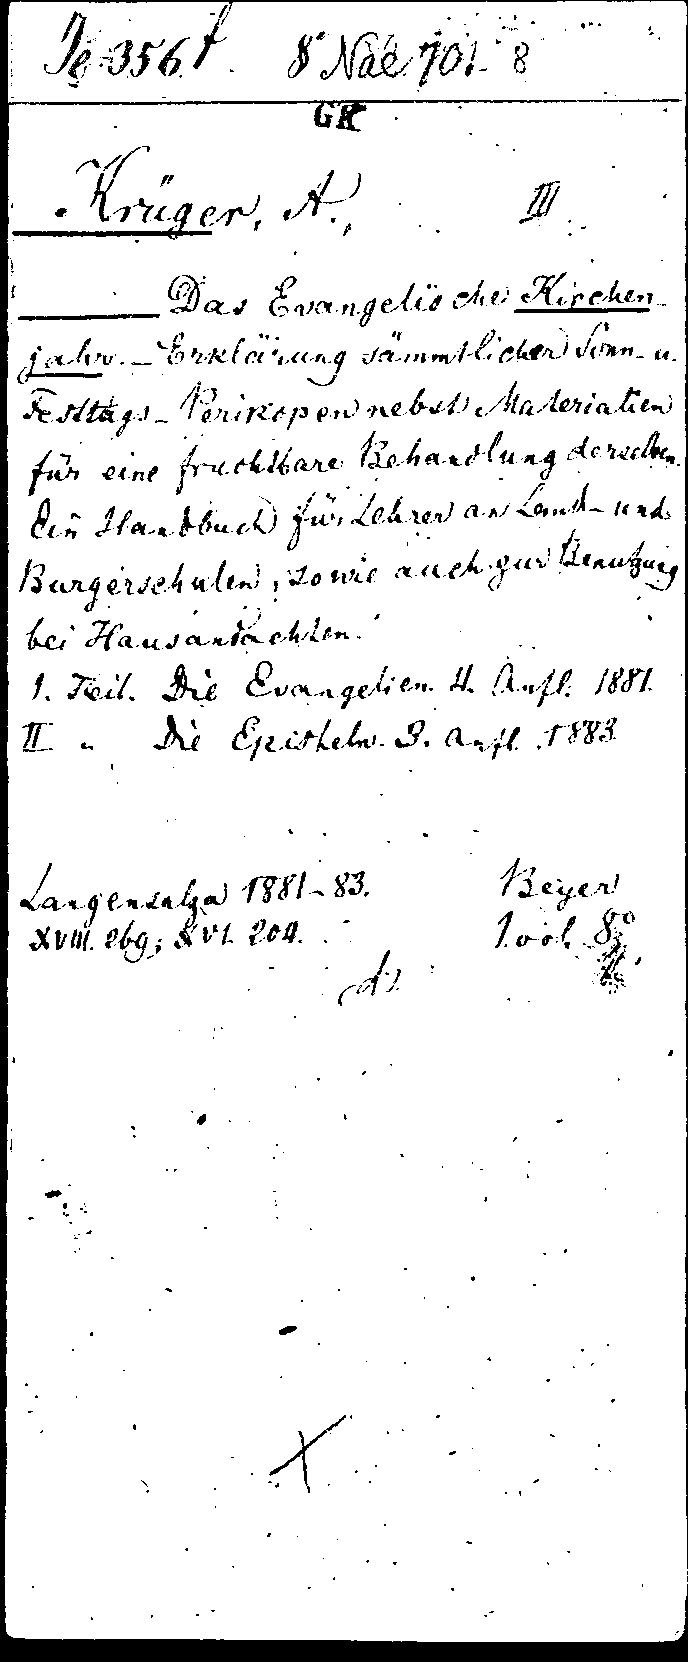 Te 356 f 8° Nac 701 8
GK
Krüger, A., III
Das Evangelische Kirchen-
jahr. – Erklärung sämmtlicher Sonn- u.
Festtags-Perikopen nebst Materialien
für eine fruchtbare Behandlung derselben.
Ein Handbuch für Lehrer an Land- und
Bürgerschulen, sowie auch zur Benutzung
bei Hausandachten.
1. Teil. Die Evangelien. 4. Aufl. 1881.
II „ Die Episteln. 3. Aufl. 1883.
Langensalza 1881–83. Beyer
XVIII. 269; XVI. 204. 1 vol. 8°